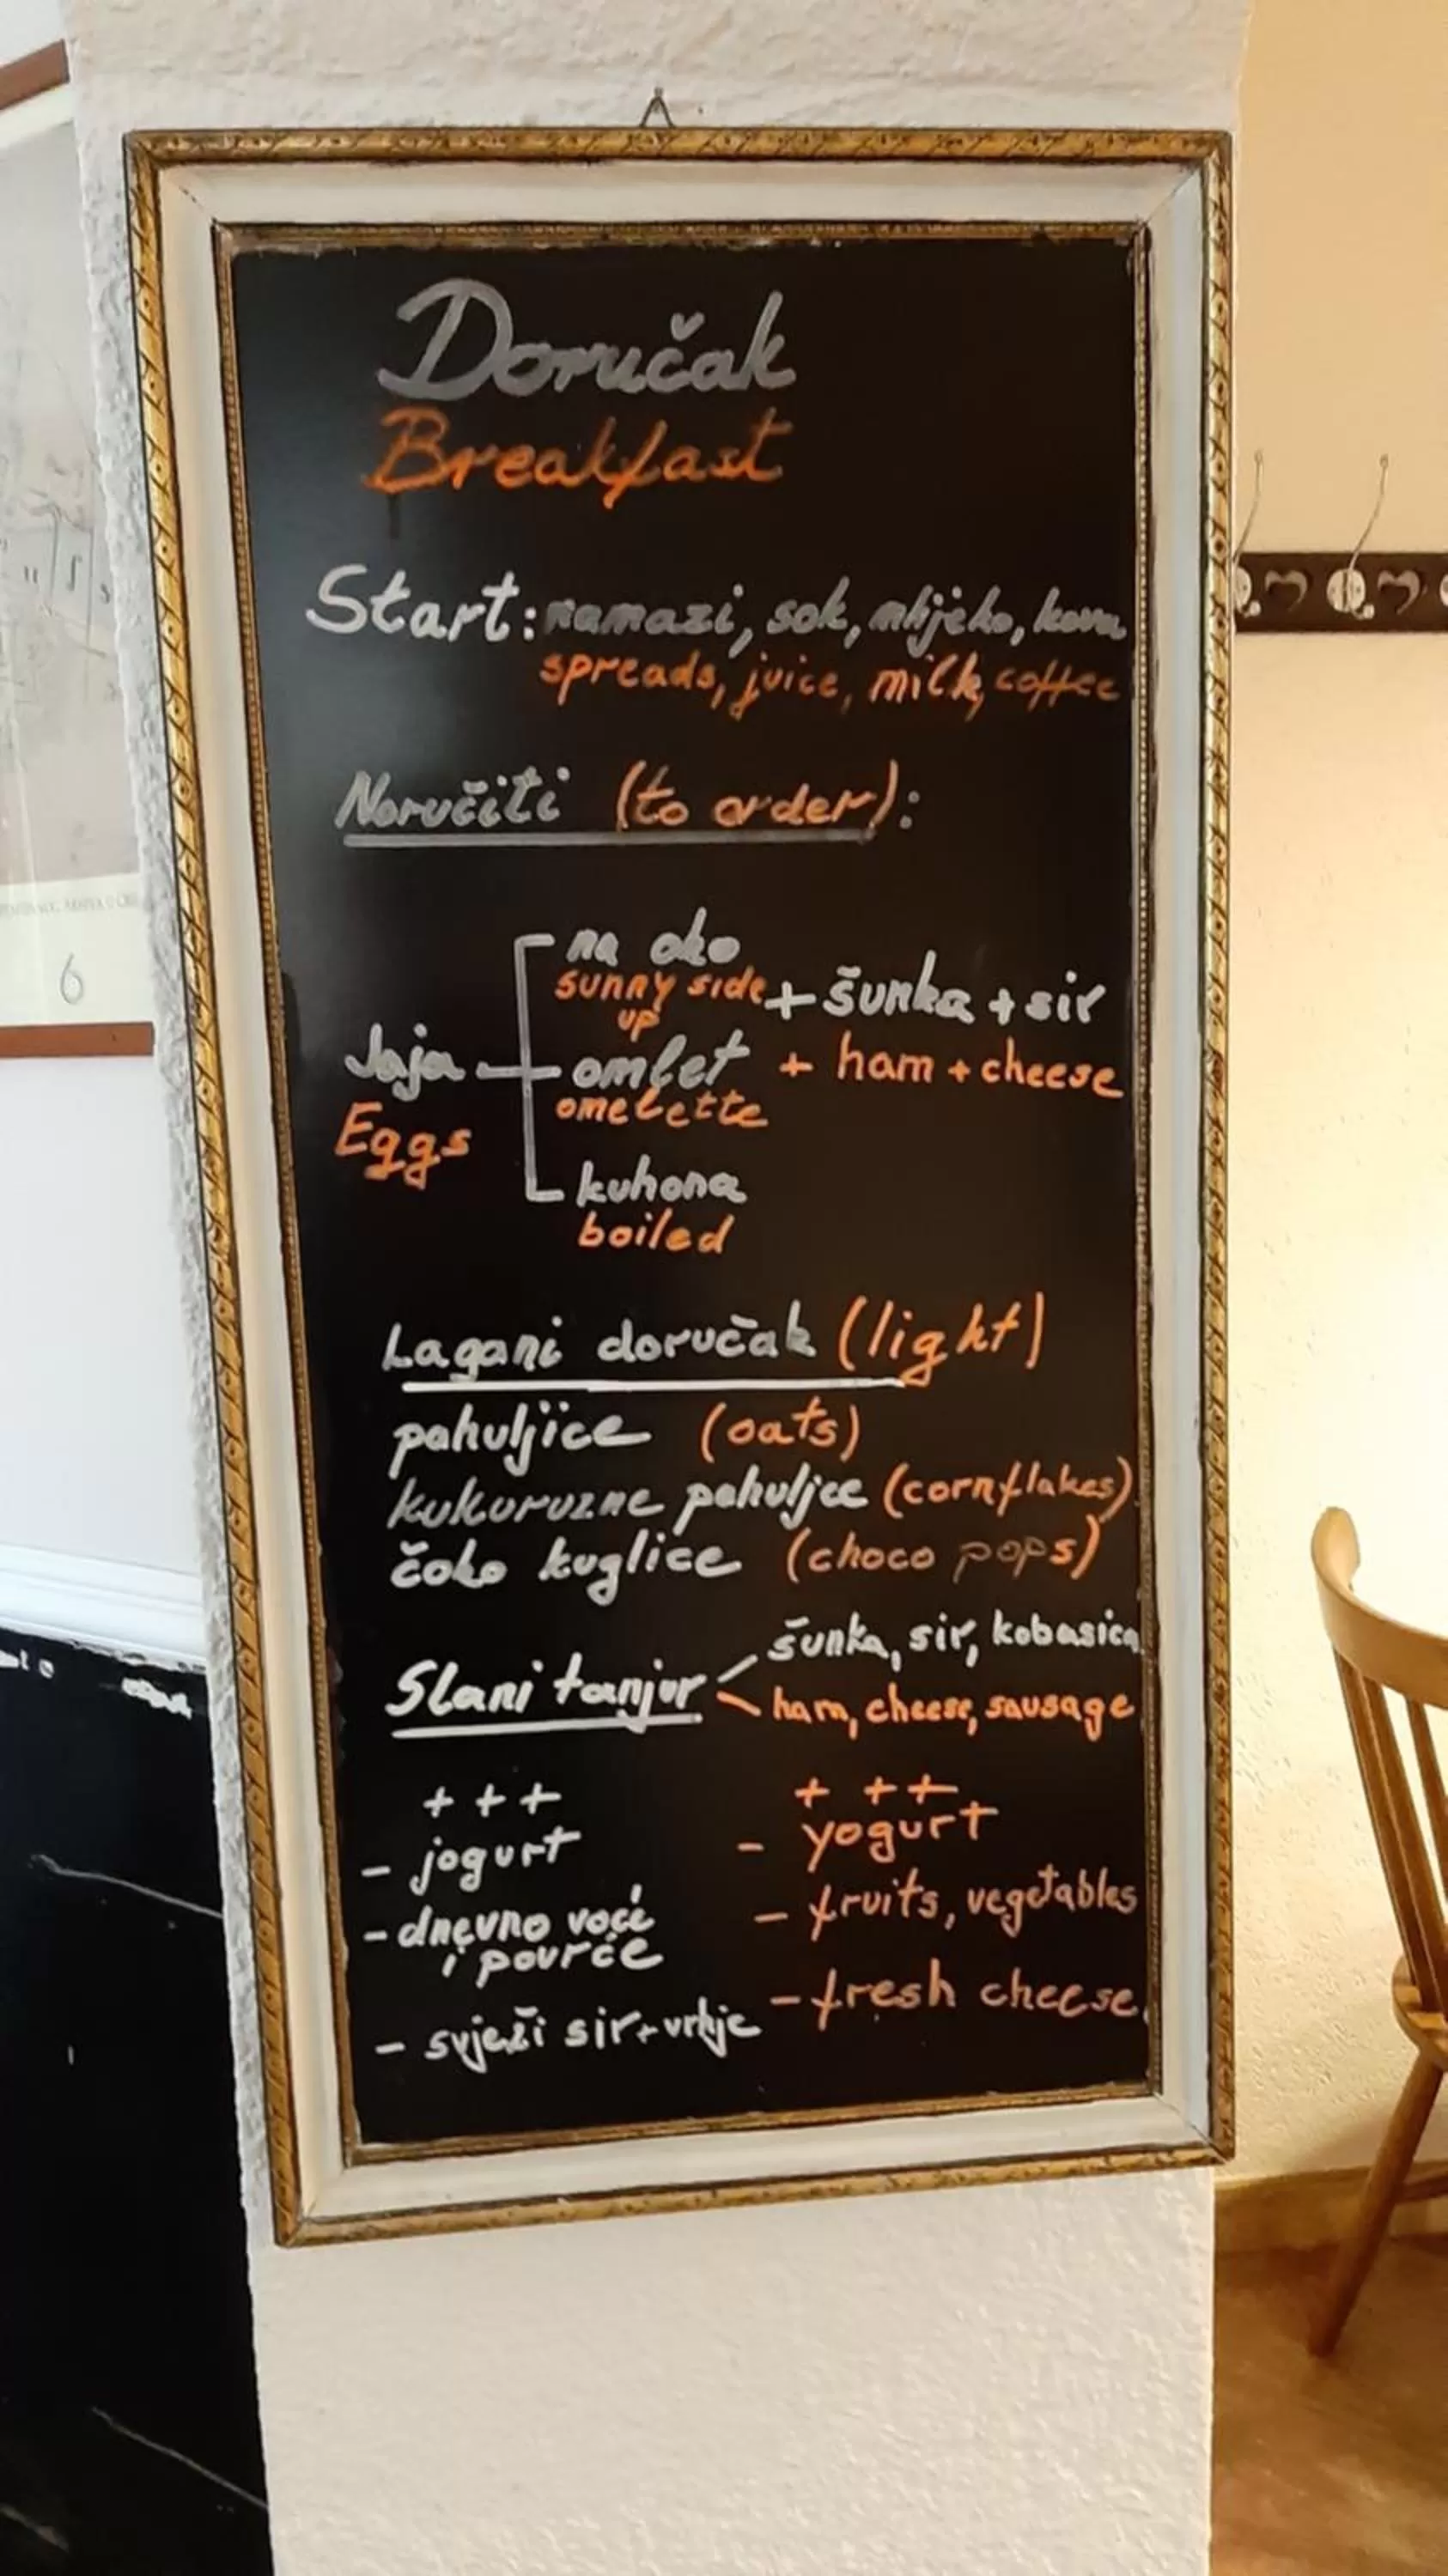 Doručak
Breakfast
Start: namazi, sok, mlijeko, kava
spreads, juice, milk, coffee
Noručiti (to order):
na oko
sunny side
up
+ šunka + sir
Jaja
omlet + ham + cheese
omelette
Eggs
kuhana
boiled
Lagani doručak (light)
pahuljice (oats)
kukuruzne pahuljce (cornflakes)
čoko kuglice (choco pops)
šunka, sir, kobasica
Slani tanjur
ham, cheese, sausage
+ + +
- jogurt
- dnevno voće
i povrće
- svježi sir + vrhje
+ + +
- yogurt
- fruits, vegetables
- fresh cheese
6